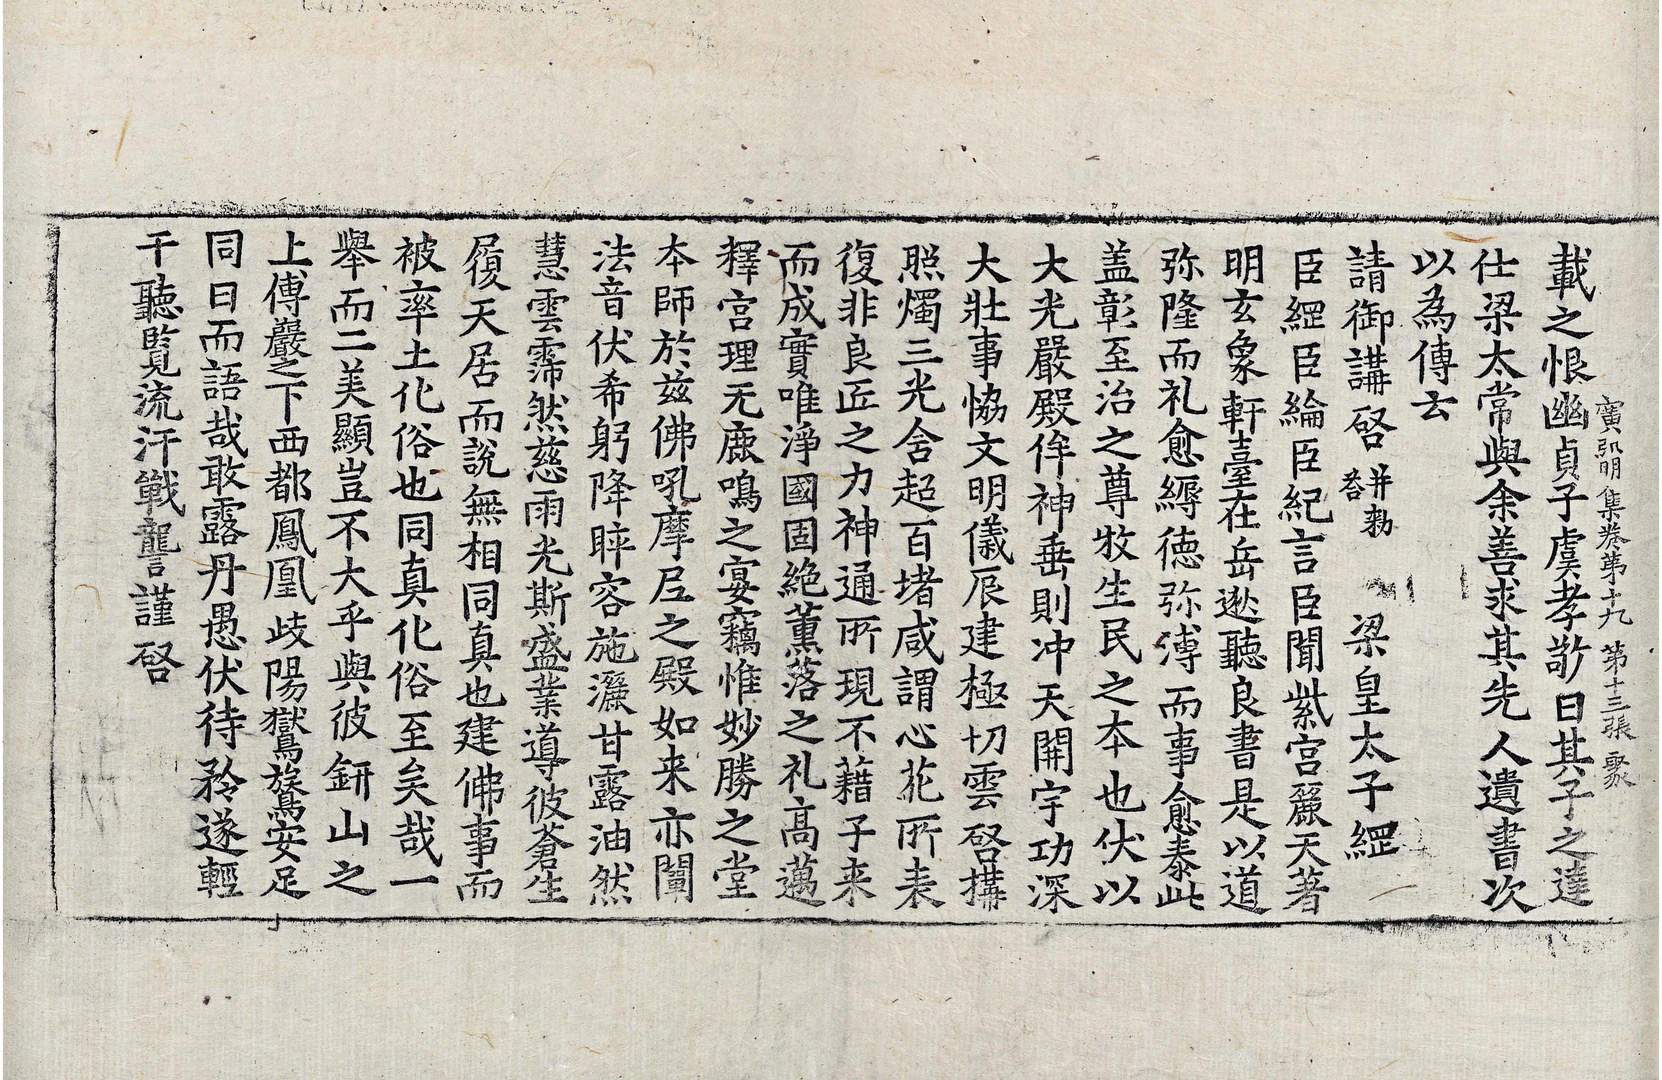 廣弘明集卷第十九 第十三張 聚
載之恨幽貞子虞孝敬曰其子之達
仕梁太常與余善求其先人遺書次
以為傳云
請御講啓 并勑答 梁皇太子綱
臣綱臣綸臣紀言臣聞紫宮麗天著
明玄象軒臺在岳逖聽良書是以道
弥隆而礼愈縟德弥溥而事愈泰此
盖彰至治之尊牧生民之本也伏以
大光嚴殿侔神垂則冲天開宇功深
大壯事恊文明儀辰建極切雲啓搆
照燭三光含超百堵咸謂心花所表
復非良匠之力神通所現不藉子来
而成實唯淨國固絶薫落之礼高邁
釋宮理无鹿鳴之宴竊惟妙勝之堂
本師於兹佛吼摩尼之殿如来亦闡
法音伏希躬降睟容施灑甘露油然
慧雲霈然慈雨光斯盛業導彼蒼生
履天居而說無相同真也建佛事而
被率土化俗也同真化俗至矣哉一
舉而二美顯豈不大乎與彼鈃山之
上傅巖之下西都鳳凰岐陽鸑鷟安足
同日而語哉敢露丹愚伏待矜遂輕
干聽覧流汗戰讋謹啓